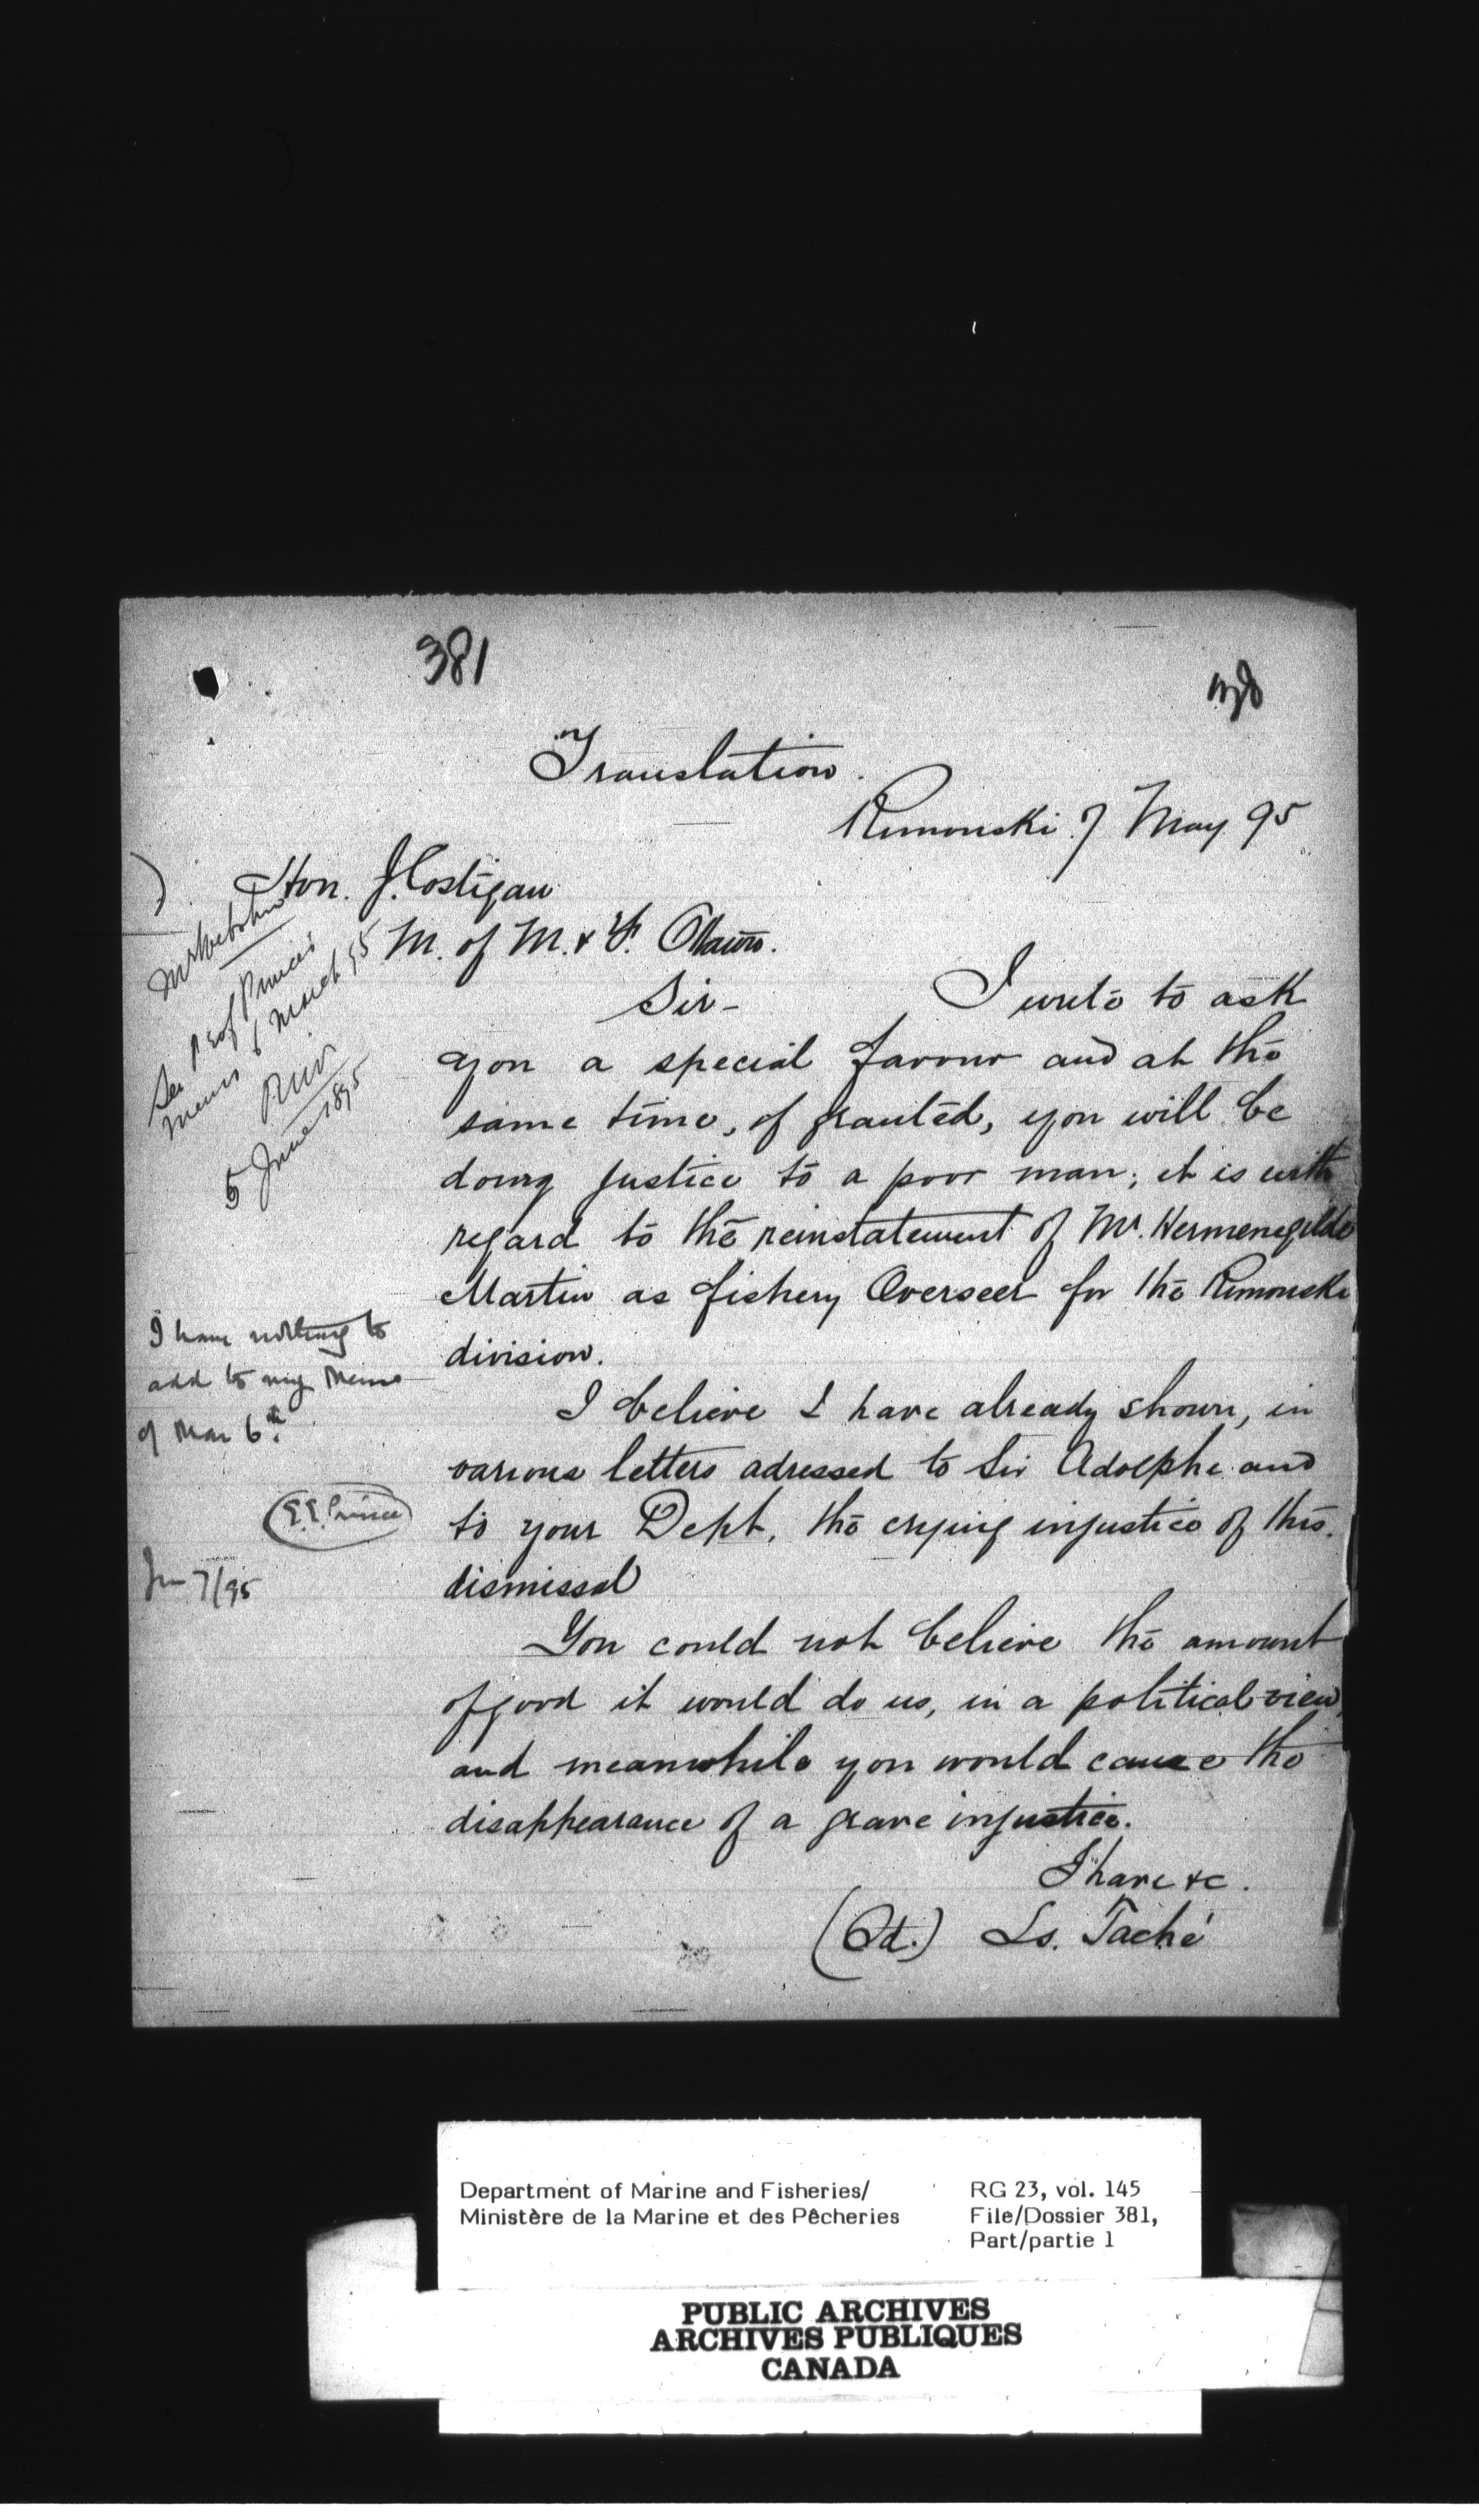 381
Translation.
Rimouski 7 May 95
Hon. J. Costigan
M. of M. & F. Ottawa.
Sir - I write to ask
you a special favour and at the
same time, if granted, you will be
doing justice to a poor man; it is with
regard to the reinstatement of Mr. Hermenegilde
Martin as fishery Overseer for the Rimouski
division.
I believe I have already shown, in
various letters adressed to Sir Adolphe and
to your Dept. the crying injustice of this
dismissal
You could not believe the amount
of good it would do us, in a political view,
and meanwhile you would cause the
disappearance of a grave injustice.
I have &c.
(Sd.) Ls. Taché
See Prof Prince's
memo 6 March 95
5 June 1895
I have nothing to
add to my Memo
of Mar 6th.
E.E. Prince
Jun 7/95
Department of Marine and Fisheries/
Ministère de la Marine et des Pêcheries
RG 23, vol. 145
File/Dossier 381,
Part/partie 1
PUBLIC ARCHIVES
ARCHIVES PUBLIQUES
CANADA